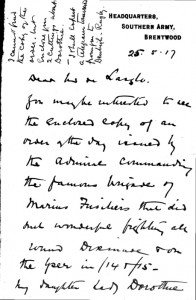 HEADQUARTERS,
SOUTHERN ARMY,
BRENTWOOD
25.5.17
I cannot find
the copy of the
order, but
2 cuttings about
Dorothie
Dear Mr de Laszlo.
You may be interested to see
the enclosed copy of an
order of the day issued by
the Admiral Commanding
the famous Brigade of
Marins Fusiliers that did
such wonderful fighting all
round Dixmude & on
the Yser in /14 & /15 -
My daughter Lady Dorothie